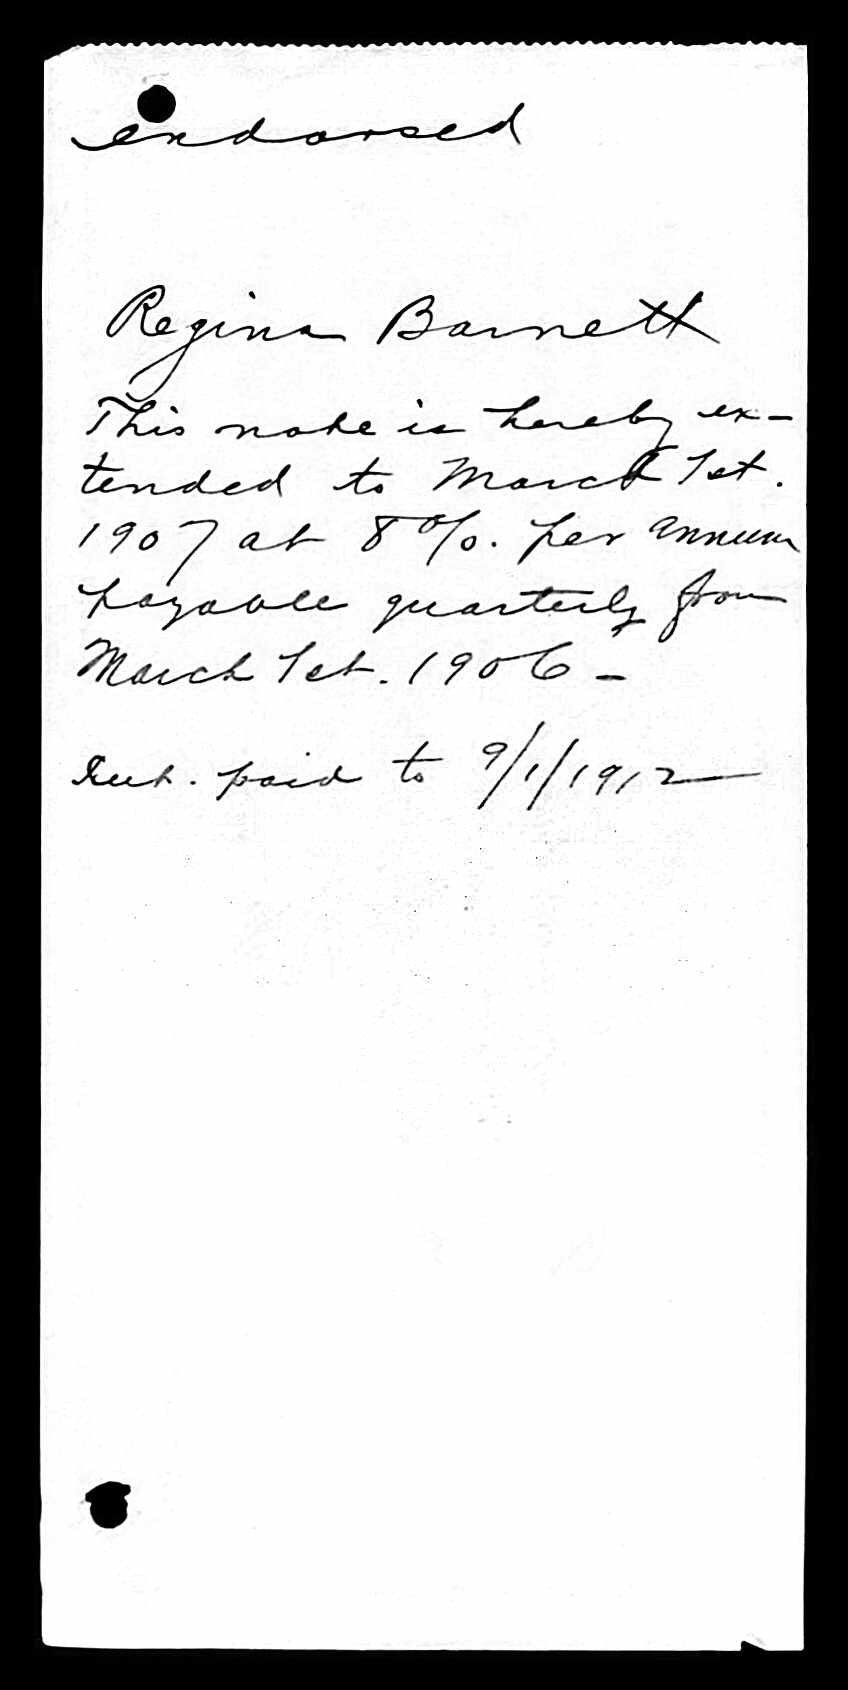 endorsed
Regina Barnett
This note is hereby ex-
tended to March 1st.
1907 at 8%. per annum
payable quarterly from
March 1st. 1906 -
Int. paid to 9/1/1912